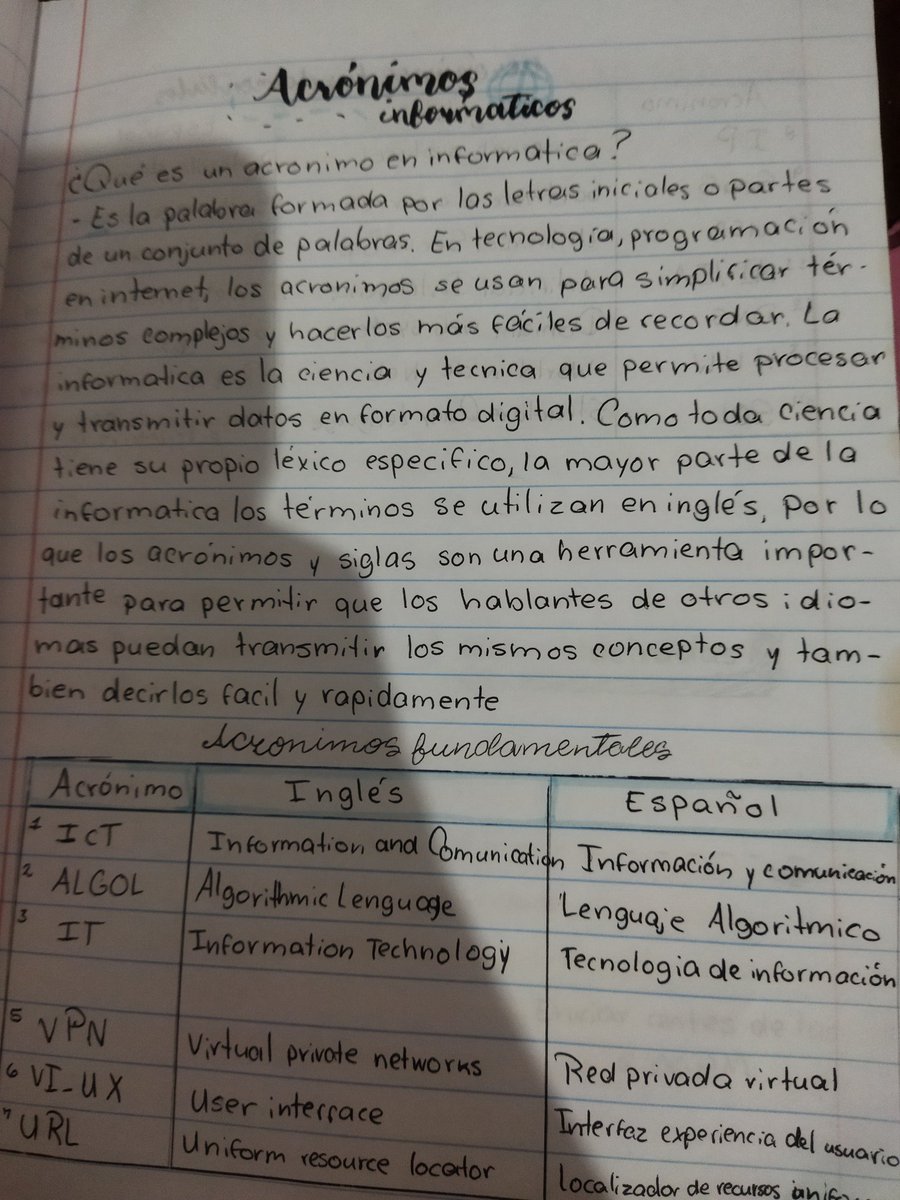 Acrónimos
informaticos
¿Qué es un acronimo en informatica?
- Es la palabra formada por las letras iniciales o partes
de un conjunto de palabras. En tecnología, programación
en internet, los acronimos se usan para simplificar tér-
minos complejos y hacerlos más fáciles de recordar. La
informatica es la ciencia y tecnica que permite procesar
y transmitir datos en formato digital. Como toda ciencia
tiene su propio léxico especifico, la mayor parte de la
informatica los términos se utilizan en inglés, por lo
que los acrónimos y siglas son una herramienta impor-
tante para permitir que los hablantes de otros idio-
mas puedan transmitir los mismos conceptos y tam-
bien decirlos facil y rapidamente
Acronimos fundamentales
Acrónimo Inglés Español
1 ICT Information and Comunication Información y comunicación
2 ALGOL Algorithmic Lenguage Lenguaje Algoritmico
3 IT Information Technology Tecnologia de información
5 VPN Virtual private networks Red privada virtual
6 VI-UX User interface Interfaz experiencia del usuario
7 URL Uniform resource locator localizador de recursos